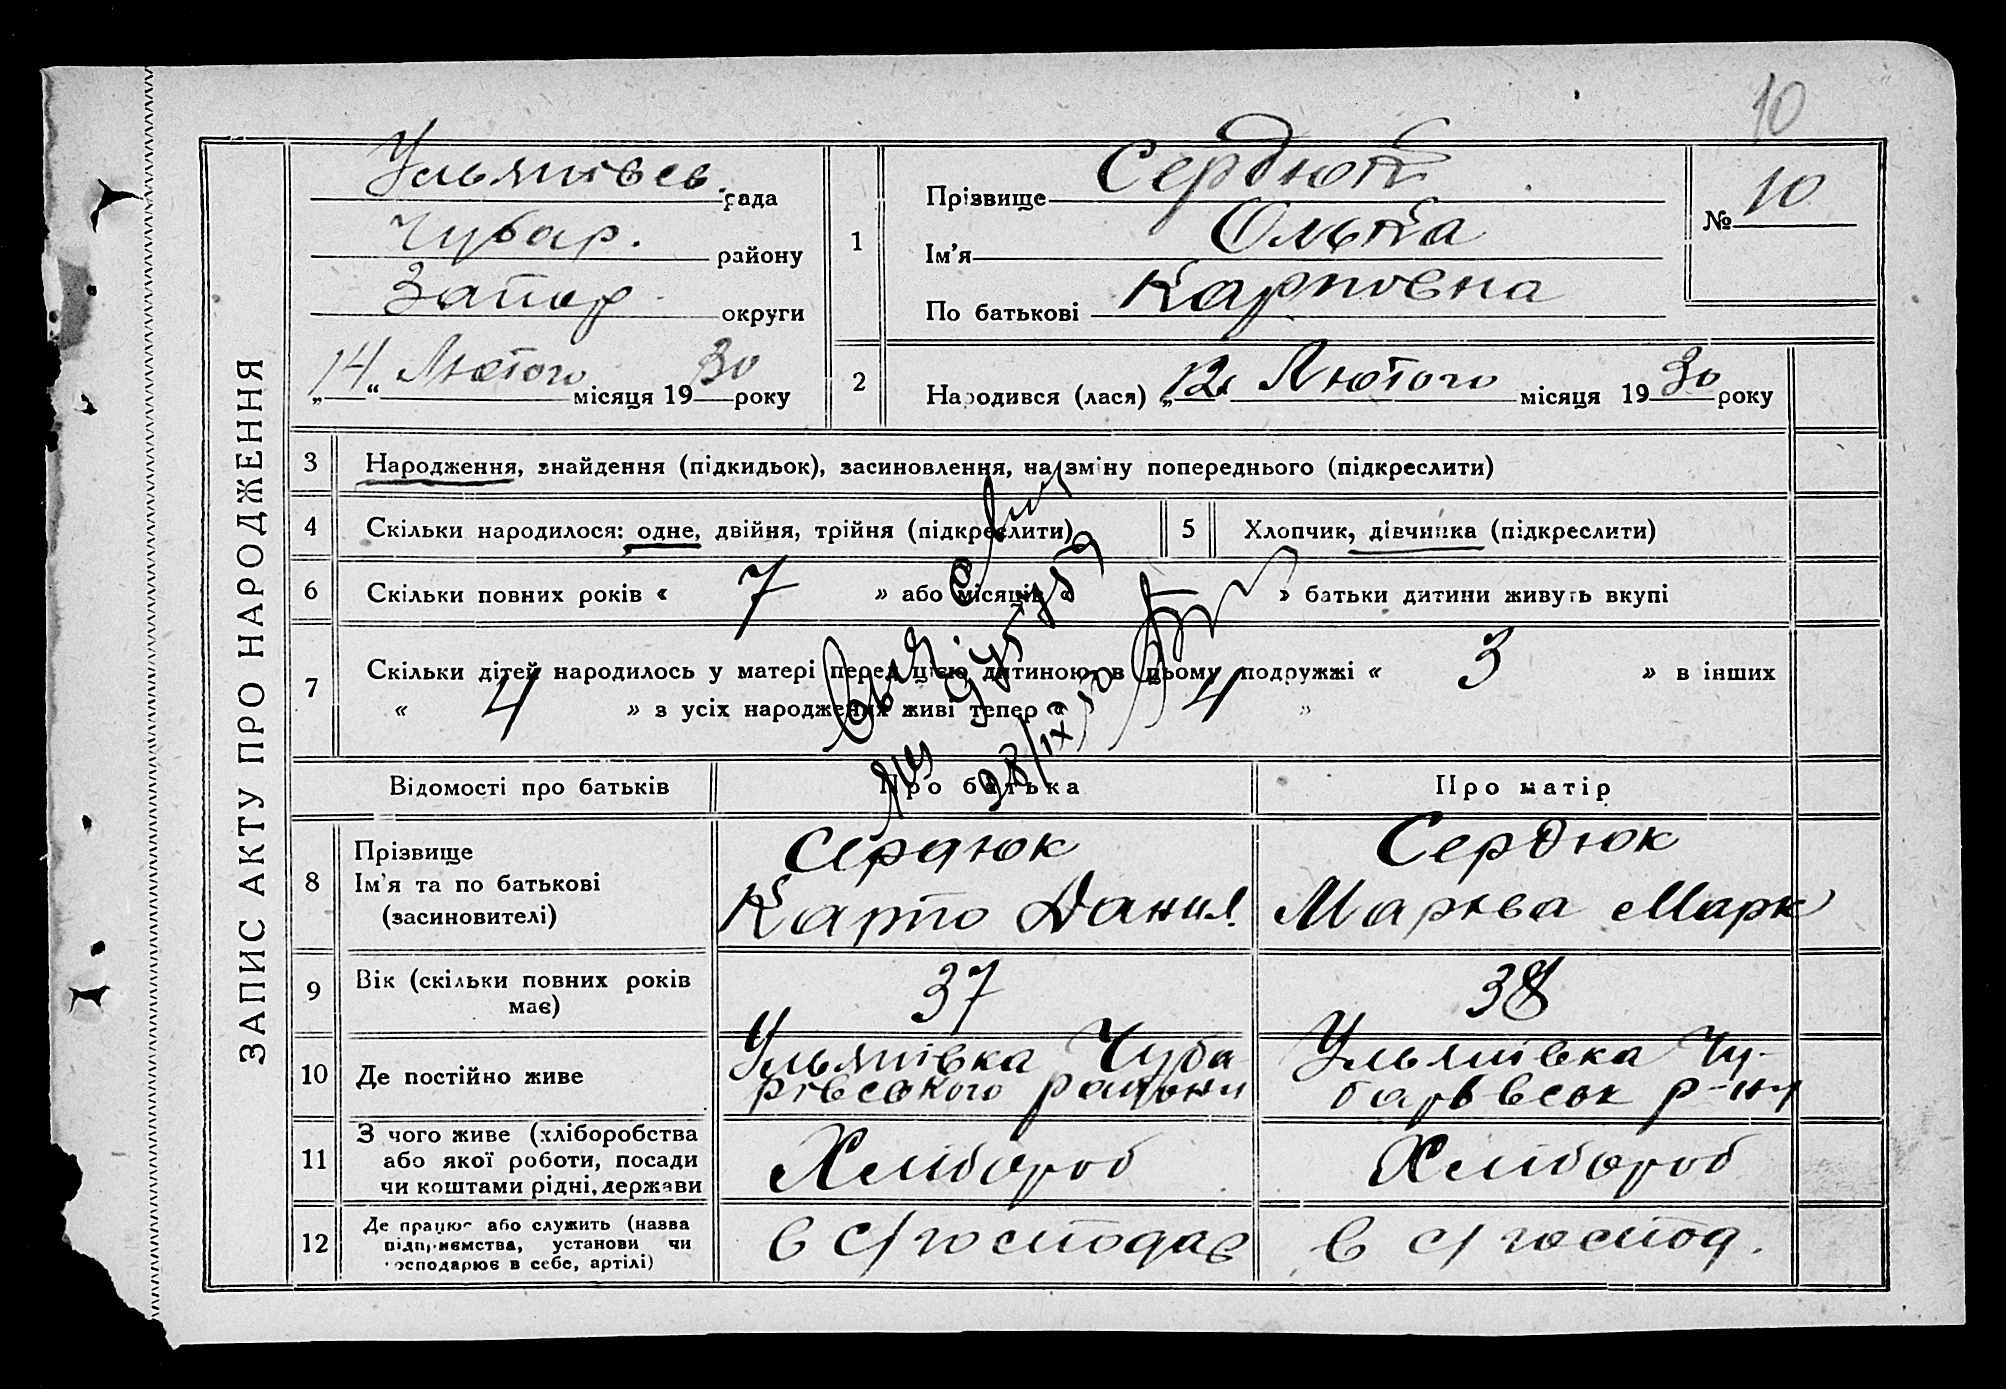 10
ЗАПИС АКТУ ПРО НАРОДЖЕННЯ
Ульянівсь. рада
Чубар. району
Запор округи
„14“ Лютого місяця 1930 року
1
Прізвище Сердюк
Ім'я Ольга
По батькові Карповна
№ 10
2
Народився (лася) „12“ Лютого місяця 1930 року
3 Народження, знайдення (підкидьок), засиновлення, на зміну попереднього (підкреслити)
4 Скільки народилося: одне, двійня, трійня (підкреслити)
5 Хлопчик, дівчинка (підкреслити)
6 Скільки повних років « 7 » або місяців « » батьки дитини живуть вкупі
7 Скільки дітей народилось у матері перед цією дитиною: в цьому подружжі « 3 » в інших
« 4 » з усіх народжених живі тепер « 4 »
28/IX
Відомості про батьків
Про батька
Про матір
8 Прізвище
Ім'я та по батькові
(засиновителі)
Сердюк
Карпо Данил.
Сердюк
Марква Марк
9 Вік (скільки повних років
має)
37
38
10 Де постійно живе
Ульянівка Чуба
рівського району
Ульянівка Чу-
барівськ р-ну
11 З чого живе (хліборобства
або якої роботи, посади
чи коштами рідні, держави
Хлібороб
Хлібороб
12 Де працює або служить (назва
підприємства, установи чи
господарює в себе, артілі)
в с/господар
в с/господ.